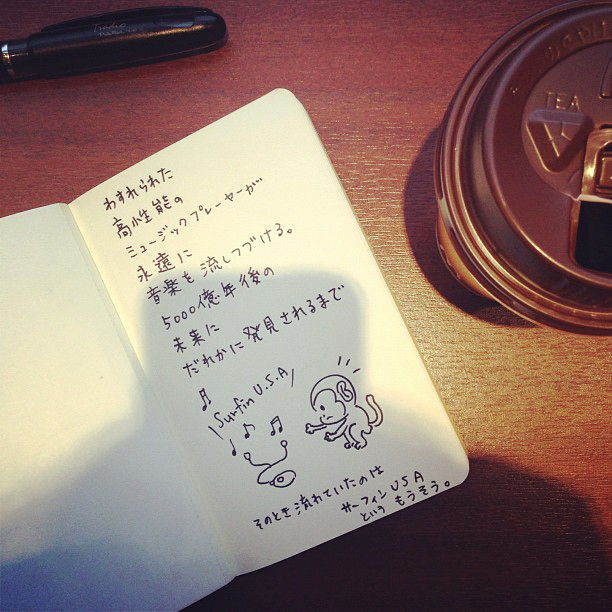 Tradio
わすれられた
高性能の
ミュージックプレーヤーが
永遠に
音楽を流しつづける。
5000億年後の
未来に
だれかに発見されるまで
\Surfin U.S.A/
そのとき流れていたのは
サーフィンUSA
という もうそう。
TEA